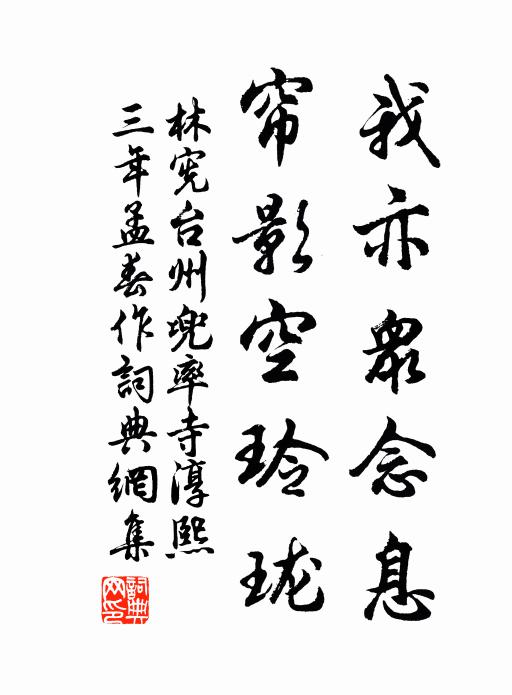 我亦衆念息
帘影空玲珑
林宪台州兜率寺淳熙
三年孟春作詞典網集
詞典
网印